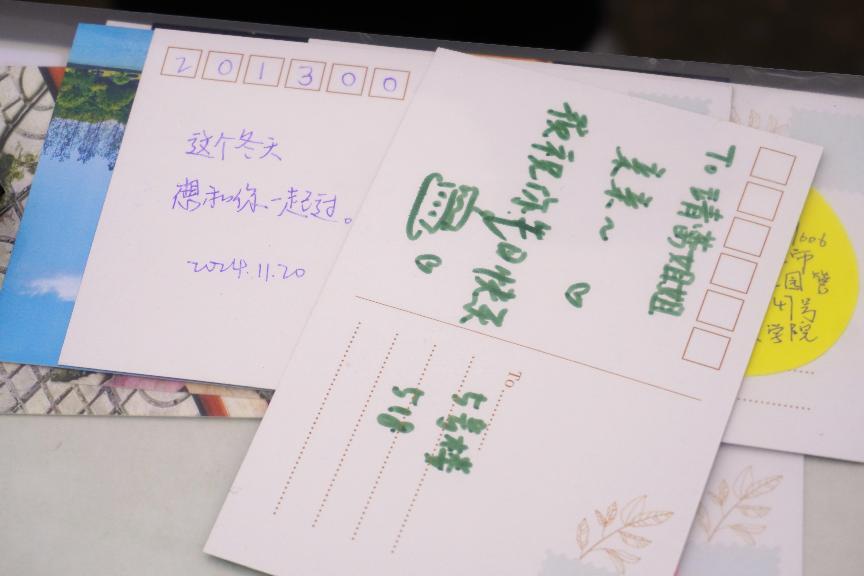 201300
这个冬天
想和你一起过。
2024.11.20
To 晴嵜姐姐
美美~
提前祝你生日快乐
To
5号楼
518
1606
师
国管
41号
学院